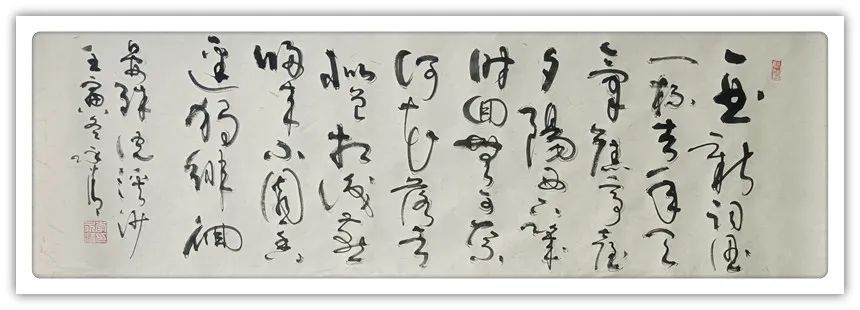 一曲新詞酒
一杯去年天
氣舊亭臺
夕陽西下幾
時回無可奈
何花落去
似曾相識燕
歸來小園香
徑獨徘徊
晏殊浣溪沙
壬寅冬